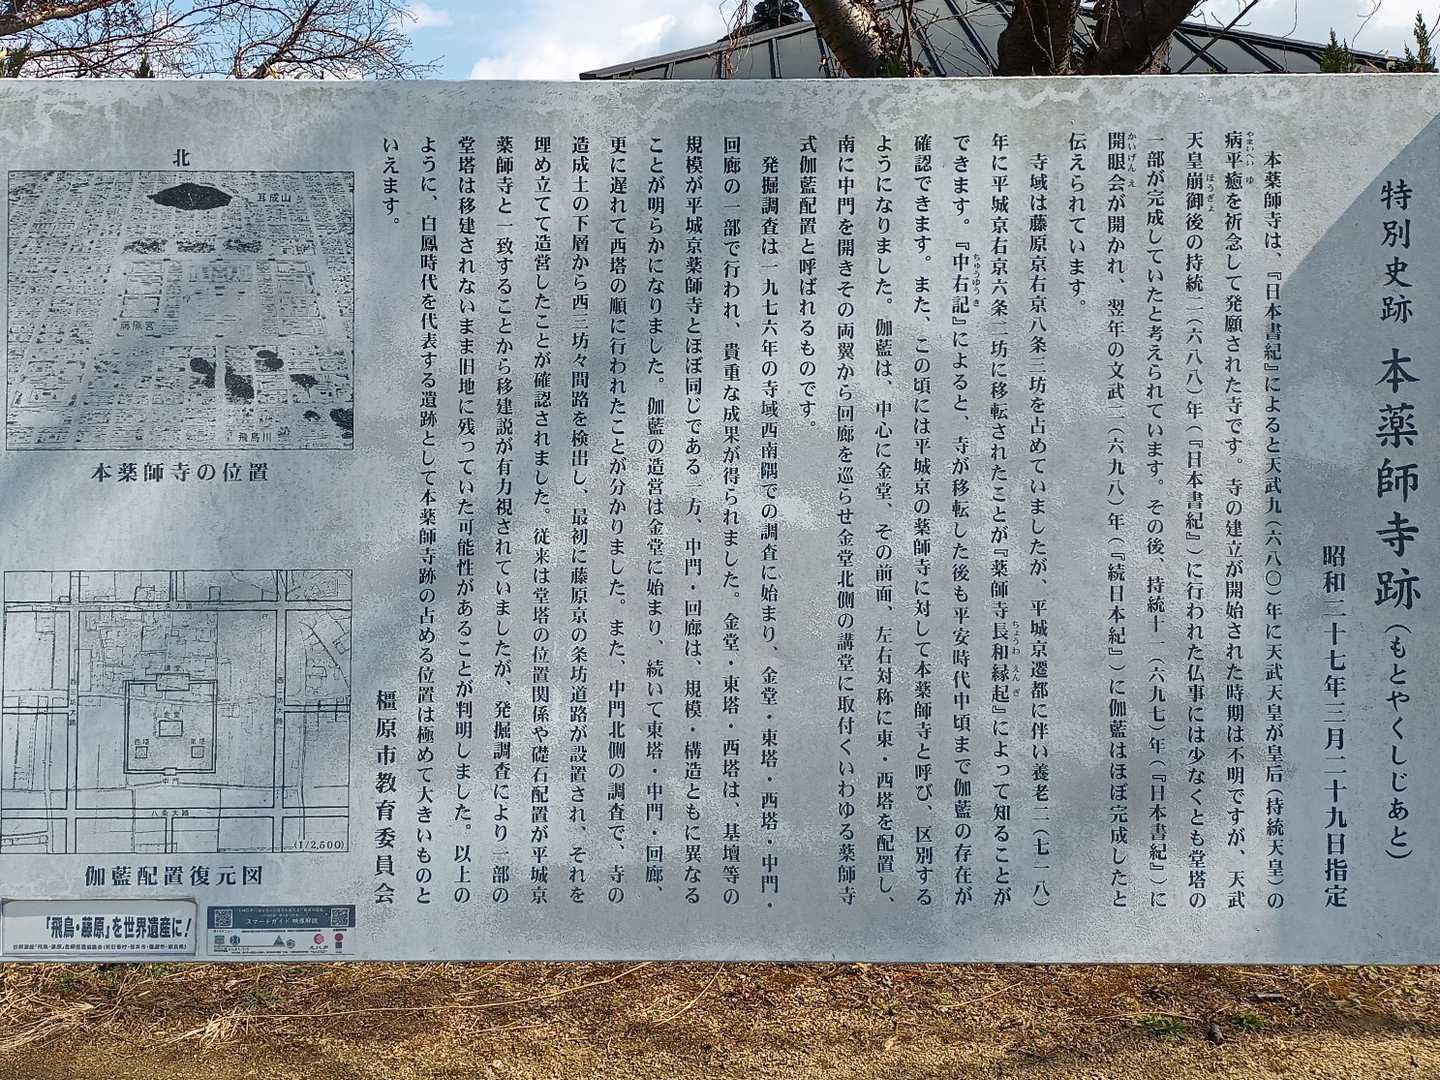 特別史跡 本薬師寺跡（もとやくしじあと）
昭和二十七年三月二十九日指定
本薬師寺は、『日本書紀』によると天武九（六八〇）年に天武天皇が皇后（持統天皇）の
病平癒を祈念して発願された寺です。寺の建立が開始された時期は不明ですが、天武
やまいへいゆ
天皇崩御後の持統二（六八八）年（『日本書紀』）に行われた仏事には少なくとも堂塔の
ほうぎょ
一部が完成していたと考えられています。その後、持統十一（六九七）年（『日本書紀』）に
開眼会が開かれ、翌年の文武二（六九八）年（『続日本紀』）に伽藍はほぼ完成したと
かいげんえ
伝えられています。
寺域は藤原京右京八条三坊を占めていましたが、平城京遷都に伴い養老二（七一八）
年に平城京右京六条二坊に移転されたことが『薬師寺長和縁起』によって知ることが
ちょうわえんぎ
できます。『中右記』によると、寺が移転した後も平安時代中頃まで伽藍の存在が
ちゅうゆうき
確認できます。また、この頃には平城京の薬師寺に対して本薬師寺と呼び、区別する
ようになりました。伽藍は、中心に金堂、その前面、左右対称に東・西塔を配置し、
南に中門を開きその両翼から回廊を巡らせ金堂北側の講堂に取付くいわゆる薬師寺
式伽藍配置と呼ばれるものです。
発掘調査は一九七六年の寺域西南隅での調査に始まり、金堂・東塔・西塔・中門・
回廊の一部で行われ、貴重な成果が得られました。金堂・東塔・西塔は、基壇等の
規模が平城京薬師寺とほぼ同じである一方、中門・回廊は、規模・構造ともに異なる
ことが明らかになりました。伽藍の造営は金堂に始まり、続いて東塔・中門・回廊、
更に遅れて西塔の順に行われたことが分かりました。また、中門北側の調査で、寺の
造成土の下層から西三坊々間路を検出し、最初に藤原京の条坊道路が設置され、それを
埋め立てて造営したことが確認されました。従来は堂塔の位置関係や礎石配置が平城京
薬師寺と一致することから移建説が有力視されていましたが、発掘調査により一部の
堂塔は移建されないまま旧地に残っていた可能性があることが判明しました。以上の
ように、白鳳時代を代表する遺跡として本薬師寺跡の占める位置は極めて大きいものと
いえます。
橿原市教育委員会
北
耳成山
藤原宮
飛鳥川
本薬師寺の位置
講堂
金堂
西塔
東塔
中門
八条大路
(1/2,500)
伽藍配置復元図
「飛鳥・藤原」を世界遺産に！
スマートガイド 映像解説